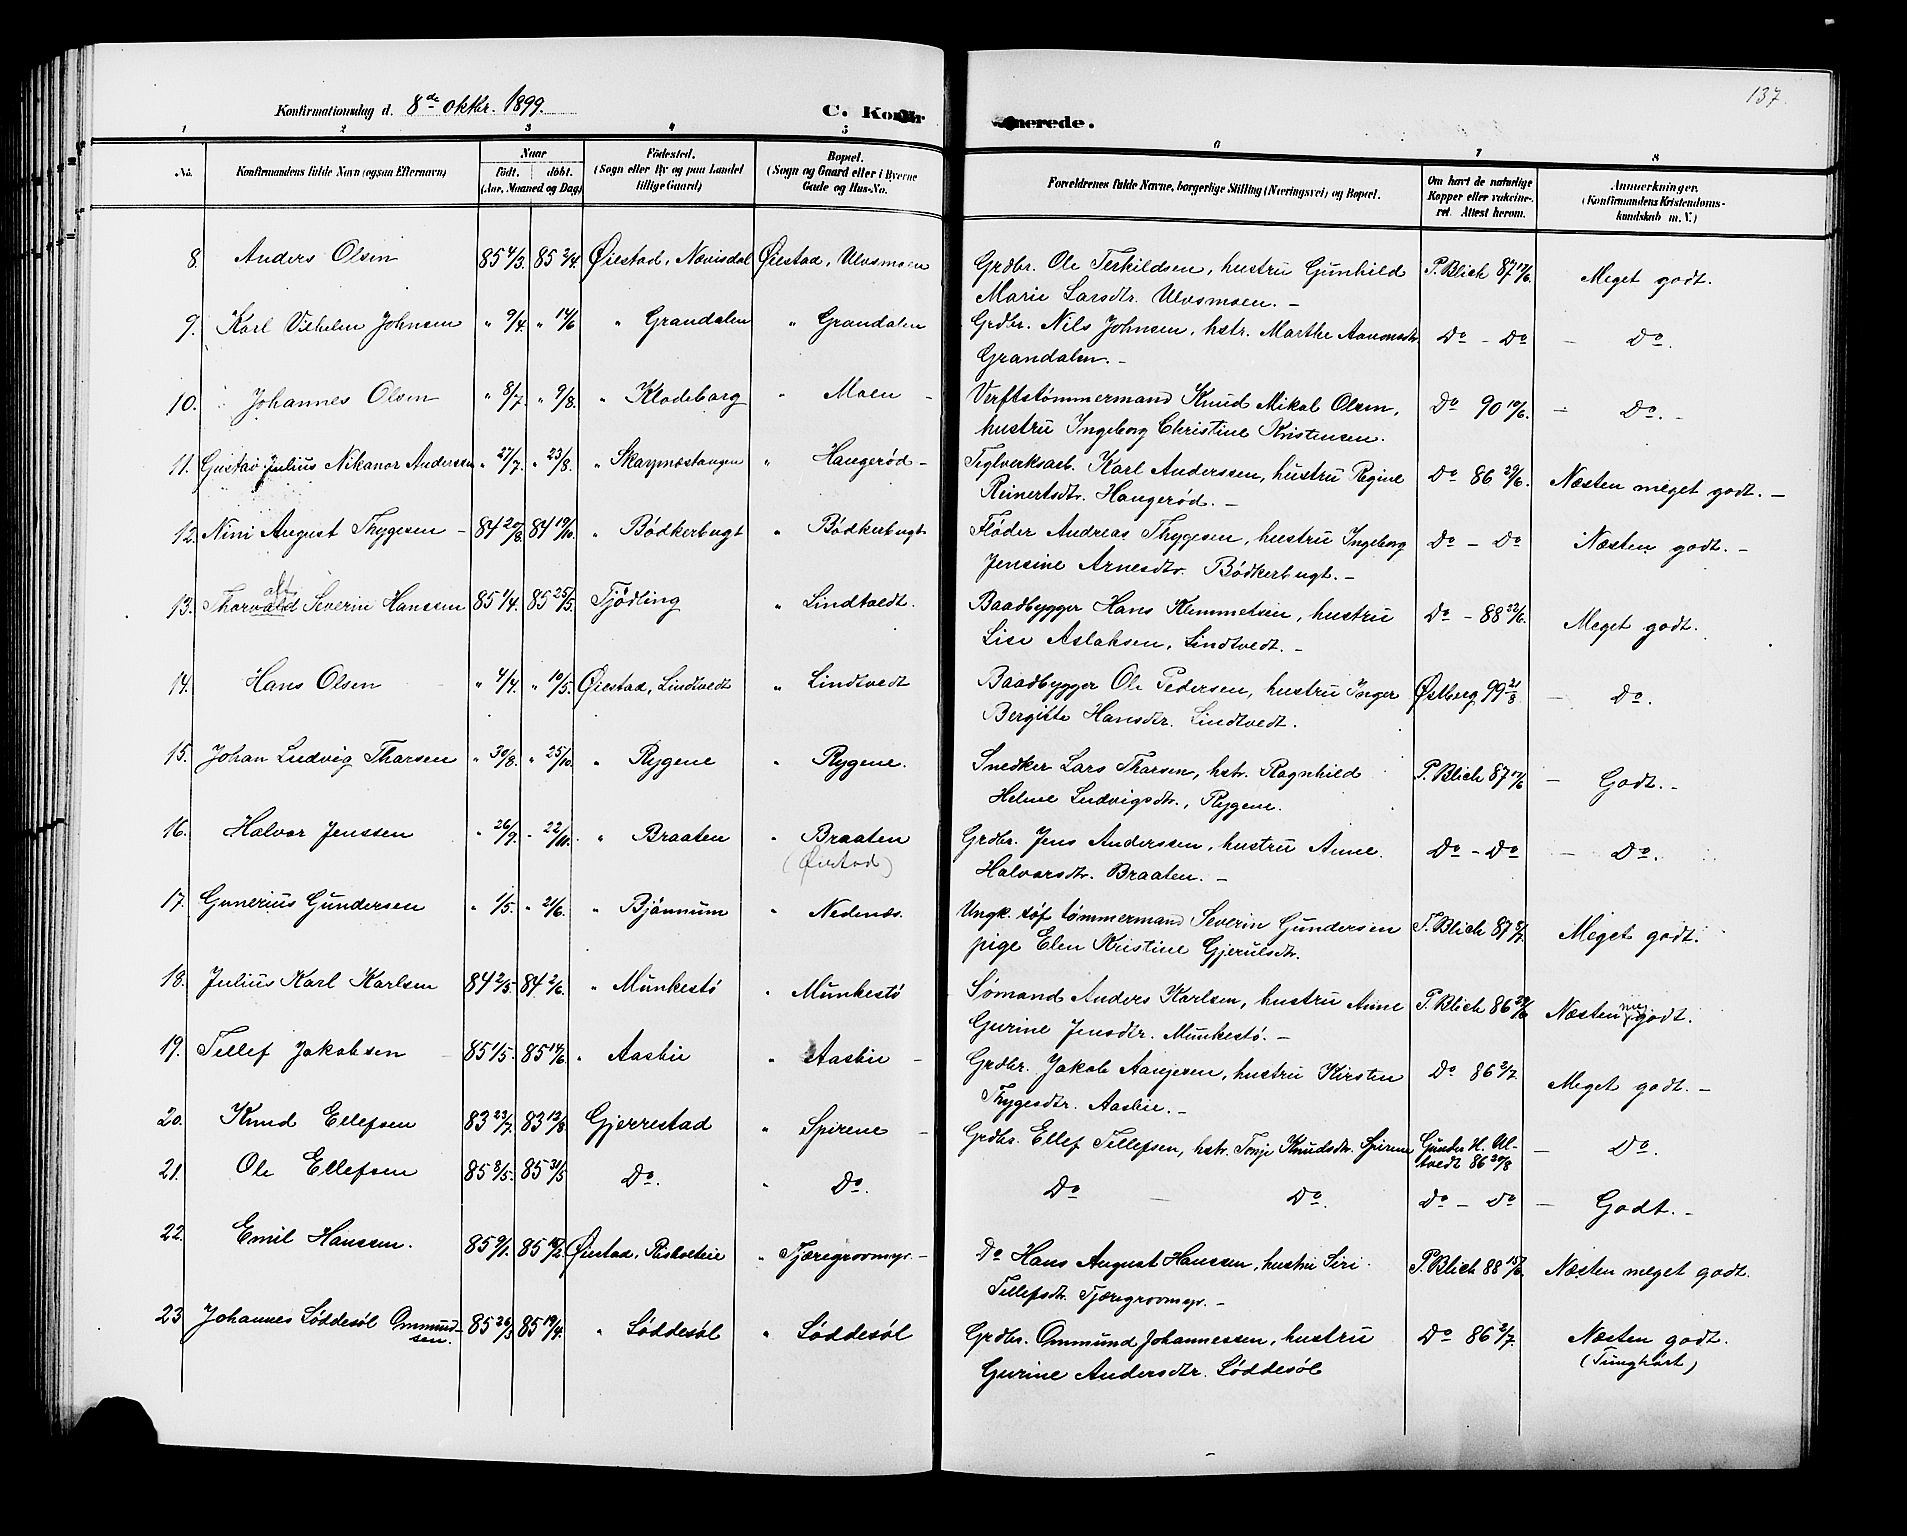 Konfirmationsdag d. 8de oktbr. 1899. C. Konfir merede. 137.
1 2 3 4 5 6 7 8
No. Konfirmandens fulde Navn (ogsaa Efternavn) Naar Födt. döbt. (Aar, Maaned og Dag) Födested. (Sogn eller By og paa Landet tillige Gaard) Bopæl. (Sogn og Gaard eller i Byerne Gade og Hus-No. Forældrenes fulde Navne, borgerlige Stilling (Næringsvei) og Bopæl. Om havt de naturlige Kopper eller vakcineret. Attest herom. Anmerkninger. (Konfirmandens Kristendomskundskab m. V.)
8. Anders Olsen 85 4/3. 85 2/4. Øiestad, Nævisdal Øiestad, Ulvsmoen Grdbr. Ole Terkildsen, hustru Gunhild P. Blich 87 17/6. Meget godt.
Marie Larsdtr. Ulvsmoen. –
9. Karl Vilhelm Johnsen " 9/4. " 14/6 " Grandalen " Grandalen Grdbr. Nils Johnsen, hstr. Marthe Aanonsdtr. Do – Do – Do.
Grandalen. –
10. Johannes Olsen " 8/7. " 9/8. " Klodeborg " Moen – Verftstømmermand Knud Mikal Olsen, Do 90 10/6. – Do. –
hustru Ingeborg Christine Kristensen.
11. Gustav Julius Nikanor Anderssen " 27/7. " 23/8. " Skarpnæstangen " Haugerød – Teglverksarb. Karl Anderssen, hustru Regine Do 86 29/6. Næsten meget godt. –
Reinertsdtr. Haugerød. –
12. Nini August Thygesen – 84 20/8. 84 19/10. " Bödkerbugt " Bödkerbugt Fløder Andreas Thygesen, hustru Ingeborg Do – Do Næsten godt. –
Jensine Arnesdtr. Bödkerbugt. –
13. Thorvald Severin Hanssen 85 1/4. 85 25/5. Tjödling " Lindtvedt. Baadbygger Hans Klemmetsen, hustru Do – 88 22/6. Meget godt.
Lise Aslaksen, Lindtvedt. –
14. Hans Olsen " 4/4. " 10/5. Øiestad, Lindtvedt " Lindtvedt Baadbygger Ole Pedersen, hustru Inger Østberg 99 21/8 – Do.
Bergitte Hansdtr. Lindtvedt.
15. Johan Ludvig Tharsen " 30/8. " 25/10. " Rygene " Rygene. Snedker Lars Tharsen, hstr. Ragnhild P. Blich 87 17/6 – Godt. –
Helene Ludvigsdtr., Rygene.
16. Halvor Jenssen " 26/9. " 22/11. " Braaten " Braaten Grdbr. Jens Anderssen, hustru Anne Do – Do – Do.
(Øiestad) Halvorsdtr. Braaten. –
17. Gunerius Gundersen " 1/5. " 21/6. " Bjönnum " Nedenæs. Ungk. söf tömmermand Severin Gundersen P. Blich 87 8/7. Meget godt.
pige Elen Kristine Gjerulsdtr.
18. Julius Karl Karlsen 84 2/5. 84 2/6. " Munkestö " Munkestö Sømand Anders Karlsen, hustru Anne P. Blich 86 29/6 Næsten godt.
Gurine Jensdtr. Munkestø. –
19. Tellef Jakobsen – 85 1/5. 85 14/6. " Aasbie " Aasbie – Grdbr. Jakob Aanjesen, hustru Kirsten Do 86 2/7. Meget godt. –
Thygesdtr. Aasbie. –
20. Knud Ellefsen 83 23/7. 83 12/8. Gjerrestad " Spirene – Grdbr. Ellef Tellefsen, hstr. Tonje Knudsdtr. Spirene Gunder H. Ult- – Do.
vedt 86 20/8
21. Ole Ellefsen 85 8/5. 85 31/5 Do. " Do. Do – Do. Do – Do – Godt. –
22. Emil Hanssen. 85 9/1. 85 15/2. Øiestad, Risholteie " Tjæregroomyr. – Do Hans August Hanssen, hustru Siri P. Blich 88 15/6. Næsten meget godt.
Tellefsdtr. Tjæregroomyr. –
23 Johannes Löddesöl Ommund- 85 26/3 85 19/4. " Löddesöl " Löddesöl Grdbr. Ommund Johannessen, hustru Do 86 2/7. Næsten godt.
sen. Gurine Andersdtr. Löddesöl (Tunghørt)